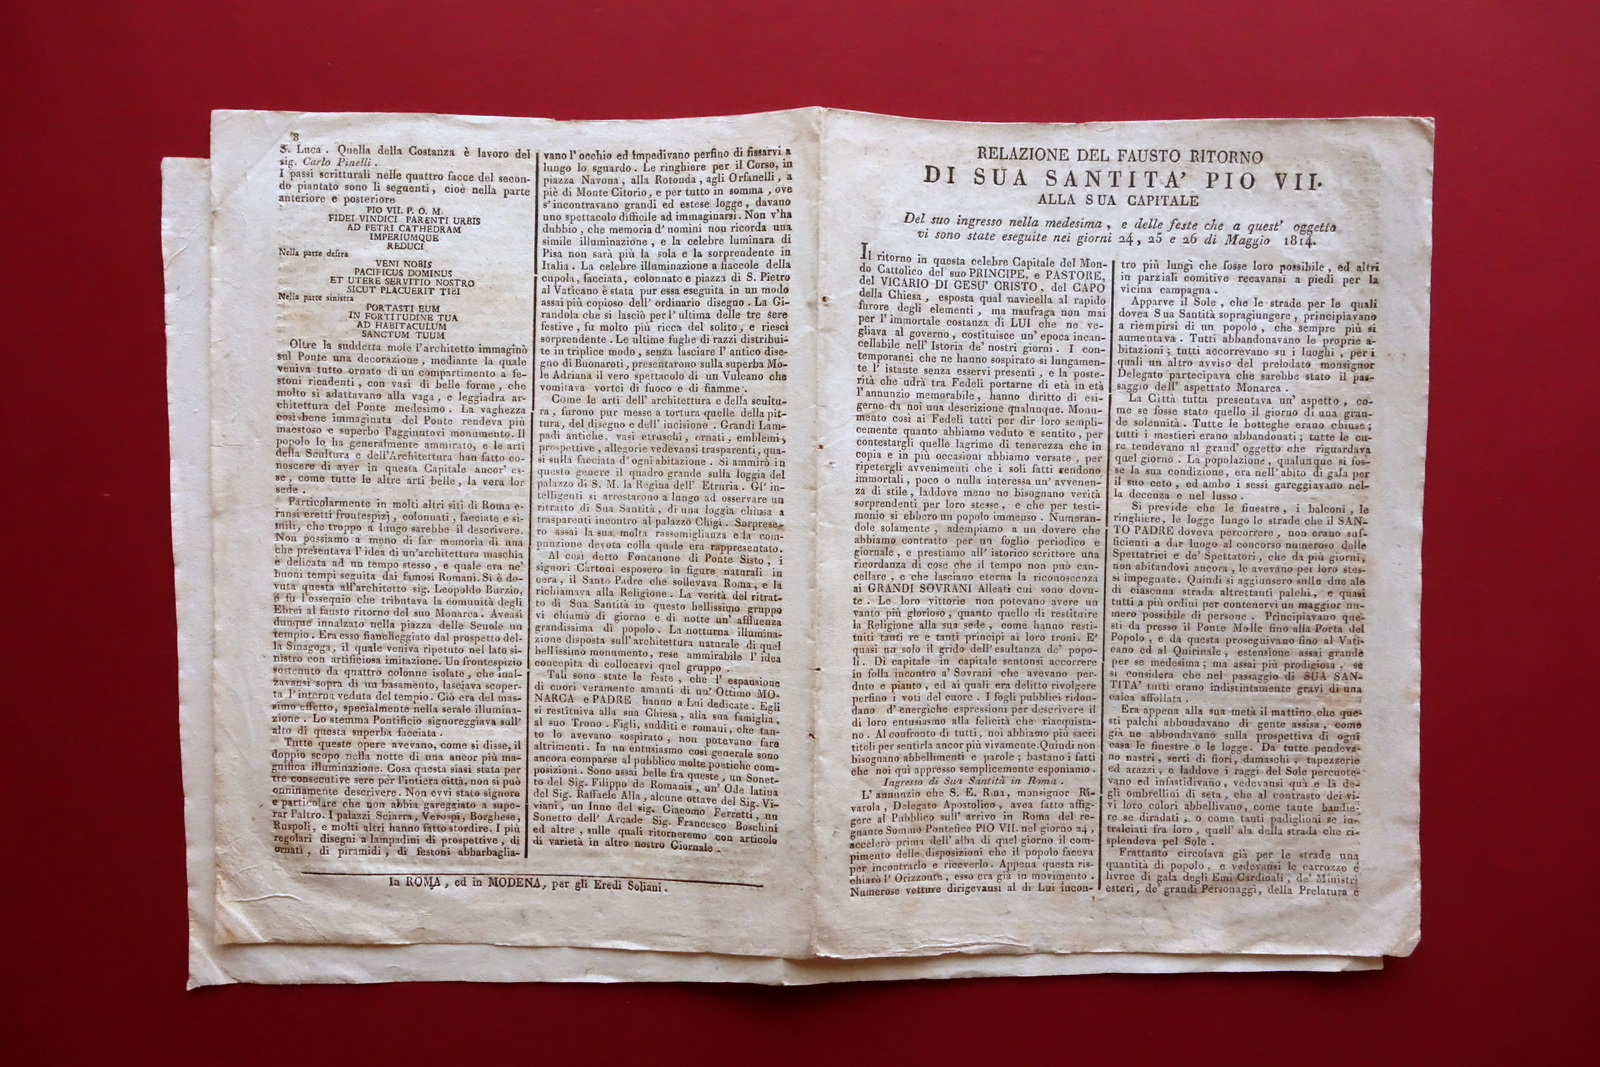 8
S. Luca. Quella della Costanza è lavoro del
sig. Carlo Pinelli.
I passi scritturali nelle quattro facce del secon-
do piantato sono li seguenti, cioè nella parte
anteriore e posteriore
PIO VII. P. O. M.
FIDEI VINDICI PARENTI URBIS
AD PETRI CATHEDRAM
IMPERIUMQUE
REDUCI
Nella parte destra
VENI NOBIS
PACIFICUS DOMINUS
ET UTERE SERVITIO NOSTRO
SICUT PLACUERIT TIBI
Nella parte sinistra
PORTASTI EUM
IN FORTITUDINE TUA
AD HABITACULUM
SANCTUM TUUM
Oltre la suddetta mole l'architetto immaginò
sul Ponte una decorazione, mediante la quale
veniva tutto ornato di un compartimento a fe-
stoni ricadenti, con vasi di belle forme, che
molto si adattavano alla vaga, e leggiadra ar-
chitettura del Ponte medesimo. La vaghezza
così bene immaginata del Ponte rendeva più
maestoso e superbo l'aggiuntovi monumento. Il
popolo lo ha generalmente ammirato, e le arti
della Scultura e dell'Architettura han fatto co-
noscere di aver in questa Capitale ancor' es-
se, come tutte le altre arti belle, la vera lor
sede.
Particolarmente in molti altri siti di Roma e-
ransi eretti frontespizj, colonnati, facciate e si-
mili, che troppo a lungo sarebbe il descrivere.
Non possiamo a meno di far memoria di una
che presentava l'idea di un'architettura maschia
e delicata ad un tempo stesso, e quale era ne'
buoni tempi seguita dai famosi Romani. Si è do-
vuta questa all'architetto sig. Leopoldo Burzio,
e fu l'ossequio che tributava la comunità degli
Ebrei al fausto ritorno del suo Monarca. Aveasi
dunque innalzato nella piazza delle Scuole un
tempio. Era esso fiancheggiato dal prospetto del-
la Sinagoga, il quale veniva ripetuto nel lato si-
nistro con artificiosa imitazione. Un frontespizio
sostenuto da quattro colonne isolate, che innal-
zavansi sopra di un basamento, lasciava scoper-
ta l'interna veduta del tempio. Ciò era del mas-
simo effetto, specialmente nella serale illumina-
zione. Lo stemma Pontificio signoreggiava sull'
alto di questa superba facciata.
Tutte queste opere avevano, come si disse, il
doppio scopo nella notte di una ancor più ma-
gnifica illuminazione. Cosa questa siasi stata per
tre consecutive sere per l'intiera città, non si può
onninamente descrivere. Non evvi stato signore
e particolare che non abbia gareggiato a supe-
rar l'altro. I palazzi Sciarra, Verospi, Borghese,
Ruspoli, e molti altri hanno fatto stordire. I più
regolari disegni a lampadini di prospettive, di
ornati, di piramidi, di festoni abbarbaglia-
vano l'occhio ed impedivano perfino di fissarvi a
lungo lo sguardo. Le ringhiere per il Corso, in
piazza Navona, alla Rotonda, agli Orfanelli, a
piè di Monte Citorio, e per tutto in somma, ove
s'incontravano grandi ed estese logge, davano
uno spettacolo difficile ad immaginarsi. Non v'ha
dubbio, che memoria d'uomini non ricorda una
simile illuminazione, e la celebre luminara di
Pisa non sarà più la sola e la sorprendente in
Italia. La celebre illuminazione a fiaccole della
cupola, facciata, colonnato e piazza di S. Pietro
al Vaticano è stata pur essa eseguita in un modo
assai più copioso dell'ordinario disegno. La Gi-
randola che si lasciò per l'ultima delle tre sere
festive, fu molto più ricca del solito, e riescì
sorprendente. Le ultime fughe di razzi distribui-
te in triplice modo, senza lasciare l'antico dise-
gno di Buonaroti, presentarono sulla superba Mo-
le Adriana il vero spettacolo di un Vulcano che
vomitava vortci di fuoco e di fiamme.
Come le arti dell'architettura e della scultu-
ra, furono pur messe a tortura quelle della pit-
tura, del disegno e dell'incisione. Grandi Lam-
padi antiche, vasi etruschi, ornati, emblemi,
prospettive, allegorie vedevansi trasparenti, qua-
si sulla facciata d'ogni abitazione. Si ammirò in
questo genere il quadro grande sulla loggia del
palazzo di S. M. la Regina dell'Etruria. Gl'in-
telligenti si arrestarono a lungo ad osservare un
ritratto di Sua Santità, di una loggia chiusa a
trasparenti incontro al palazzo Chigi. Sorprese-
ro assai la sua molta rassomiglianza e la com-
punzione devota colla quale era rappresentato.
Al così detto Fontanone di Ponte Sisto, i
signori Cartoni esposero in figure naturali in
cera, il Santo Padre che sollevava Roma, e la
richiamava alla Religione. La verità del ritrat-
to di Sua Santità in questo bellissimo gruppo
vi chiamò di giorno e di notte un'affluenza
grandissima di popolo. La notturna illumina-
zione disposta sull'architettura naturale di quel
bellissimo monumento, rese ammirabile l'idea
concepita di collocarvi quel gruppo.
Tali sono state le feste, che l'espansione
di cuori veramente amanti di un'Ottimo MO-
NARCA e PADRE hanno a Lui dedicate. Egli
si restituiva alla sua Chiesa, alla sua famiglia,
al suo Trono. Figli, sudditi e romani, che tan-
to lo avevano sospirato, non potevano fare
altrimenti. In un entusiasmo così generale sono
ancora comparse al pubblico molte poetiche com-
posizioni. Sono assai belle fra queste, un Sonet-
to del Sig. Filippo de Romanis, un'Ode latina
del Sig. Raffaele Alla, alcune ottave del Sig. Vi-
viani, un Inno del sig. Giacomo Ferretti, un
Sonetto dell'Arcade Sig. Francesco Boschini
ed altre, sulle quali ritorneremo con articolo
di varietà in altro nostro Giornale.
In ROMA, ed in MODENA, per gli Eredi Soliani.
RELAZIONE DEL FAUSTO RITORNO
DI SUA SANTITA' PIO VII.
ALLA SUA CAPITALE
Del suo ingresso nella medesima, e delle feste che a quest' oggetto
vi sono state eseguite nei giorni 24, 25 e 26 di Maggio 1814.
Il ritorno in questa celebre Capitale del Mon-
do Cattolico del suo PRINCIPE, e PASTORE,
del VICARIO DI GESU' CRISTO, del CAPO
della Chiesa, esposta qual navicella al rapido
furore degli elementi, ma naufraga non mai
per l'immortale costanza di LUI che ne ve-
gliava al governo, costituisce un'epoca incan-
cellabile nell'Istoria de' nostri giorni. I con-
temporanei che ne hanno sospirato sì lungamen-
te l'istante senza esservi presenti, e la poste-
rità che udrà tra Fedeli portarne di età in età
l'annunzio memorabile, hanno diritto di esi-
gerne da noi una descrizione qualunque. Monu-
mento così ai Fedeli tutti per dir loro sempli-
cemente quanto abbiamo veduto e sentito, per
contestargli quelle lagrime di tenerezza che in
copia e in più occasioni abbiamo versate, per
ripetergli avvenimenti che i soli fatti rendono
immortali, poco o nulla interessa un'avvenen-
za di stile, laddove meno ne bisognano verità
sorprendenti per loro stesse, e che per testi-
monio si ebbero un popolo immenso. Numeran-
dole solamente, adempiamo a un dovere che
abbiamo contratto per un foglio periodico e
giornale, e prestiamo all'istorico scrittore una
ricordanza di cose che il tempo non può can-
cellare, e che lasciano eterna la riconoscenza
ai GRANDI SOVRANI Alleati cui sono dovu-
te. Le loro vittorie non potevano avere un
vanto più glorioso, quanto quello di restituire
la Religione alla sua sede, come hanno resti-
tuiti tanti re e tanti principi ai loro troni. E'
quasi un solo il grido dell'esultanza de' popo-
li. Di capitale in capitale sentonsi accorrere
in folla incontro a' Sovrani che avevano per-
duto e pianto, ed ai quali era delitto rivolgere
perfino i voti del cuore. I fogli pubblici ridon-
dano d'energiche espressioni per descrivere il
di loro entusiasmo alla felicità che riacquista-
no. Al confronto di tutti, noi abbiamo più sacri
titoli per sentirla ancor più vivamente. Quindi non
bisognano abbellimenti e parole; bastano i fatti
che noi qui appresso semplicemente esponiamo.
Ingresso di Sua Santità in Roma.
L'annunzio che S. E. Rma, monsignor Ri-
varola, Delegato Apostolico, avea fatto affig-
gere al Pubblico sull'arrivo in Roma del re-
gnante Sommo Pontefice PIO VII. nel giorno 24,
accelerò prima dell'alba di quel giorno il com-
pimento delle disposizioni che il popolo faceva
per incontrarlo e riceverlo. Appena questa ris-
chiarò l'Orizzonte, esso era già in movimento.
Numerose vetture dirigevansi al di Lui incon-
tro più lungi che fosse loro possibile, ed altri
in parziali comitive recavansi a piedi per la
vicina campagna.
Apparve il Sole, che le strade per le quali
dovea Sua Santità sopragiungere, principiavano
a riempirsi di un popolo, che sempre più si
aumentava. Tutti abbandonavano le proprie a-
bitazioni; tutti accorrevano su i luoghi, per i
quali un altro avviso del prelodato monsignor
Delegato partecipava che sarebbe stato il pas-
saggio dell'aspettato Monarca.
La Città tutta presentava un'aspetto, co-
me se fosse stato quello il giorno di una gran-
de solennità. Tutte le botteghe erano chiuse;
tutti i mestieri erano abbandonati; tutte le cu-
re tendevano al grand'oggetto che riguardava
quel giorno. La popolazione, qualunque si fos-
se la sua condizione, era nell'abito di gala per
il suo ceto, ed ambo i sessi gareggiavano nel-
la decenza e nel lusso.
Si previde che le finestre, i balconi, le
ringhiere, le logge lungo le strade che il SAN-
TO PADRE doveva percorrere, non erano suf-
ficienti a dar luogo al concorso numeroso delle
Spettatrici e de' Spettatori, che da più giorni,
non abitandovi ancora, le avevano per loro stes-
si impegnate. Quindi si aggiunsero sulle due ale
di ciascuna strada altrettanti palchi, e quasi
tutti a più ordini per contenervi un maggior nu-
mero possibile di persone. Principiavano que-
sti da presso il Ponte Molle fino alla Porta del
Popolo, e da questa proseguivano fino al Vati-
cano ed al Quirinale, estensione assai grande
per se medesima; ma assai più prodigiosa, se
si considera che nel passaggio di SUA SAN-
TITA' tutti erano indistintamente gravi di una
calca affollata.
Era appena alla sua metà il mattino che que-
sti palchi abbondavano di gente assisa, come
già ne abbondavano sulla prospettiva di ogni
casa le finestre e le logge. Da tutte pendeva-
no nastri, serti di fiori, damaschi, tapezzerie
ed arazzi, e laddove i raggi del Sole percuote-
vano ed infastidivano, vedevansi quà e là de-
gli ombrellini di seta, che al contrasto dei vi-
vi loro colori abbellivano, come tante bandie-
re se diradati, o come tanti padiglioni se in-
tralciati fra loro, quell'ala della strada che ri-
splendeva pel Sole.
Frattanto circolava già per le strade una
quantità di popolo, e vedevansi le carrozze e
livree di gala degli Emi Cardinali, de' Ministri
esteri, de' grandi Personaggi, della Prelatura e